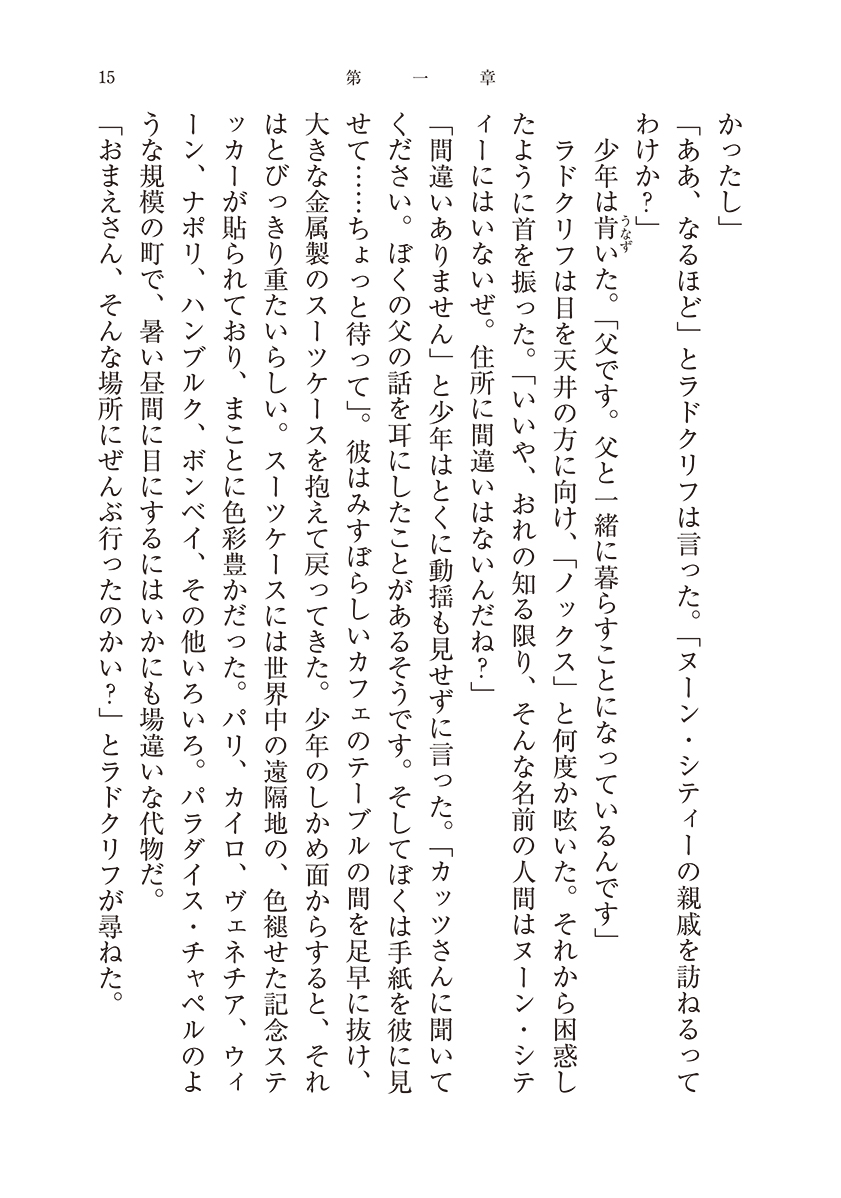 15
第一章
かったし」
「ああ、なるほど」とラドクリフは言った。「ヌーン・シティーの親戚を訪ねるって
わけか？」
少年は肯いた。「父です。父と一緒に暮らすことになっているんです」
うなず
ラドクリフは目を天井の方に向け、「ノックス」と何度か呟いた。それから困惑し
たように首を振った。「いいや、おれの知る限り、そんな名前の人間はヌーン・シテ
ィーにはいないぜ。住所に間違いはないんだね？」
「間違いありません」と少年はとくに動揺も見せずに言った。「カッツさんに聞いて
ください。ぼくの父の話を耳にしたことがあるそうです。そしてぼくは手紙を彼に見
せて……ちょっと待って」。彼はみすぼらしいカフェのテーブルの間を足早に抜け、
大きな金属製のスーツケースを抱えて戻ってきた。少年のしかめ面からすると、それ
はとびっきり重たいらしい。スーツケースには世界中の遠隔地の、色褪せた記念ステ
ッカーが貼られており、まことに色彩豊かだった。パリ、カイロ、ヴェネチア、ウィ
ーン、ナポリ、ハンブルク、ボンベイ、その他いろいろ。パラダイス・チャペルのよ
うな規模の町で、暑い昼間に目にするにはいかにも場違いな代物だ。
「おまえさん、そんな場所にぜんぶ行ったのかい？」とラドクリフが尋ねた。